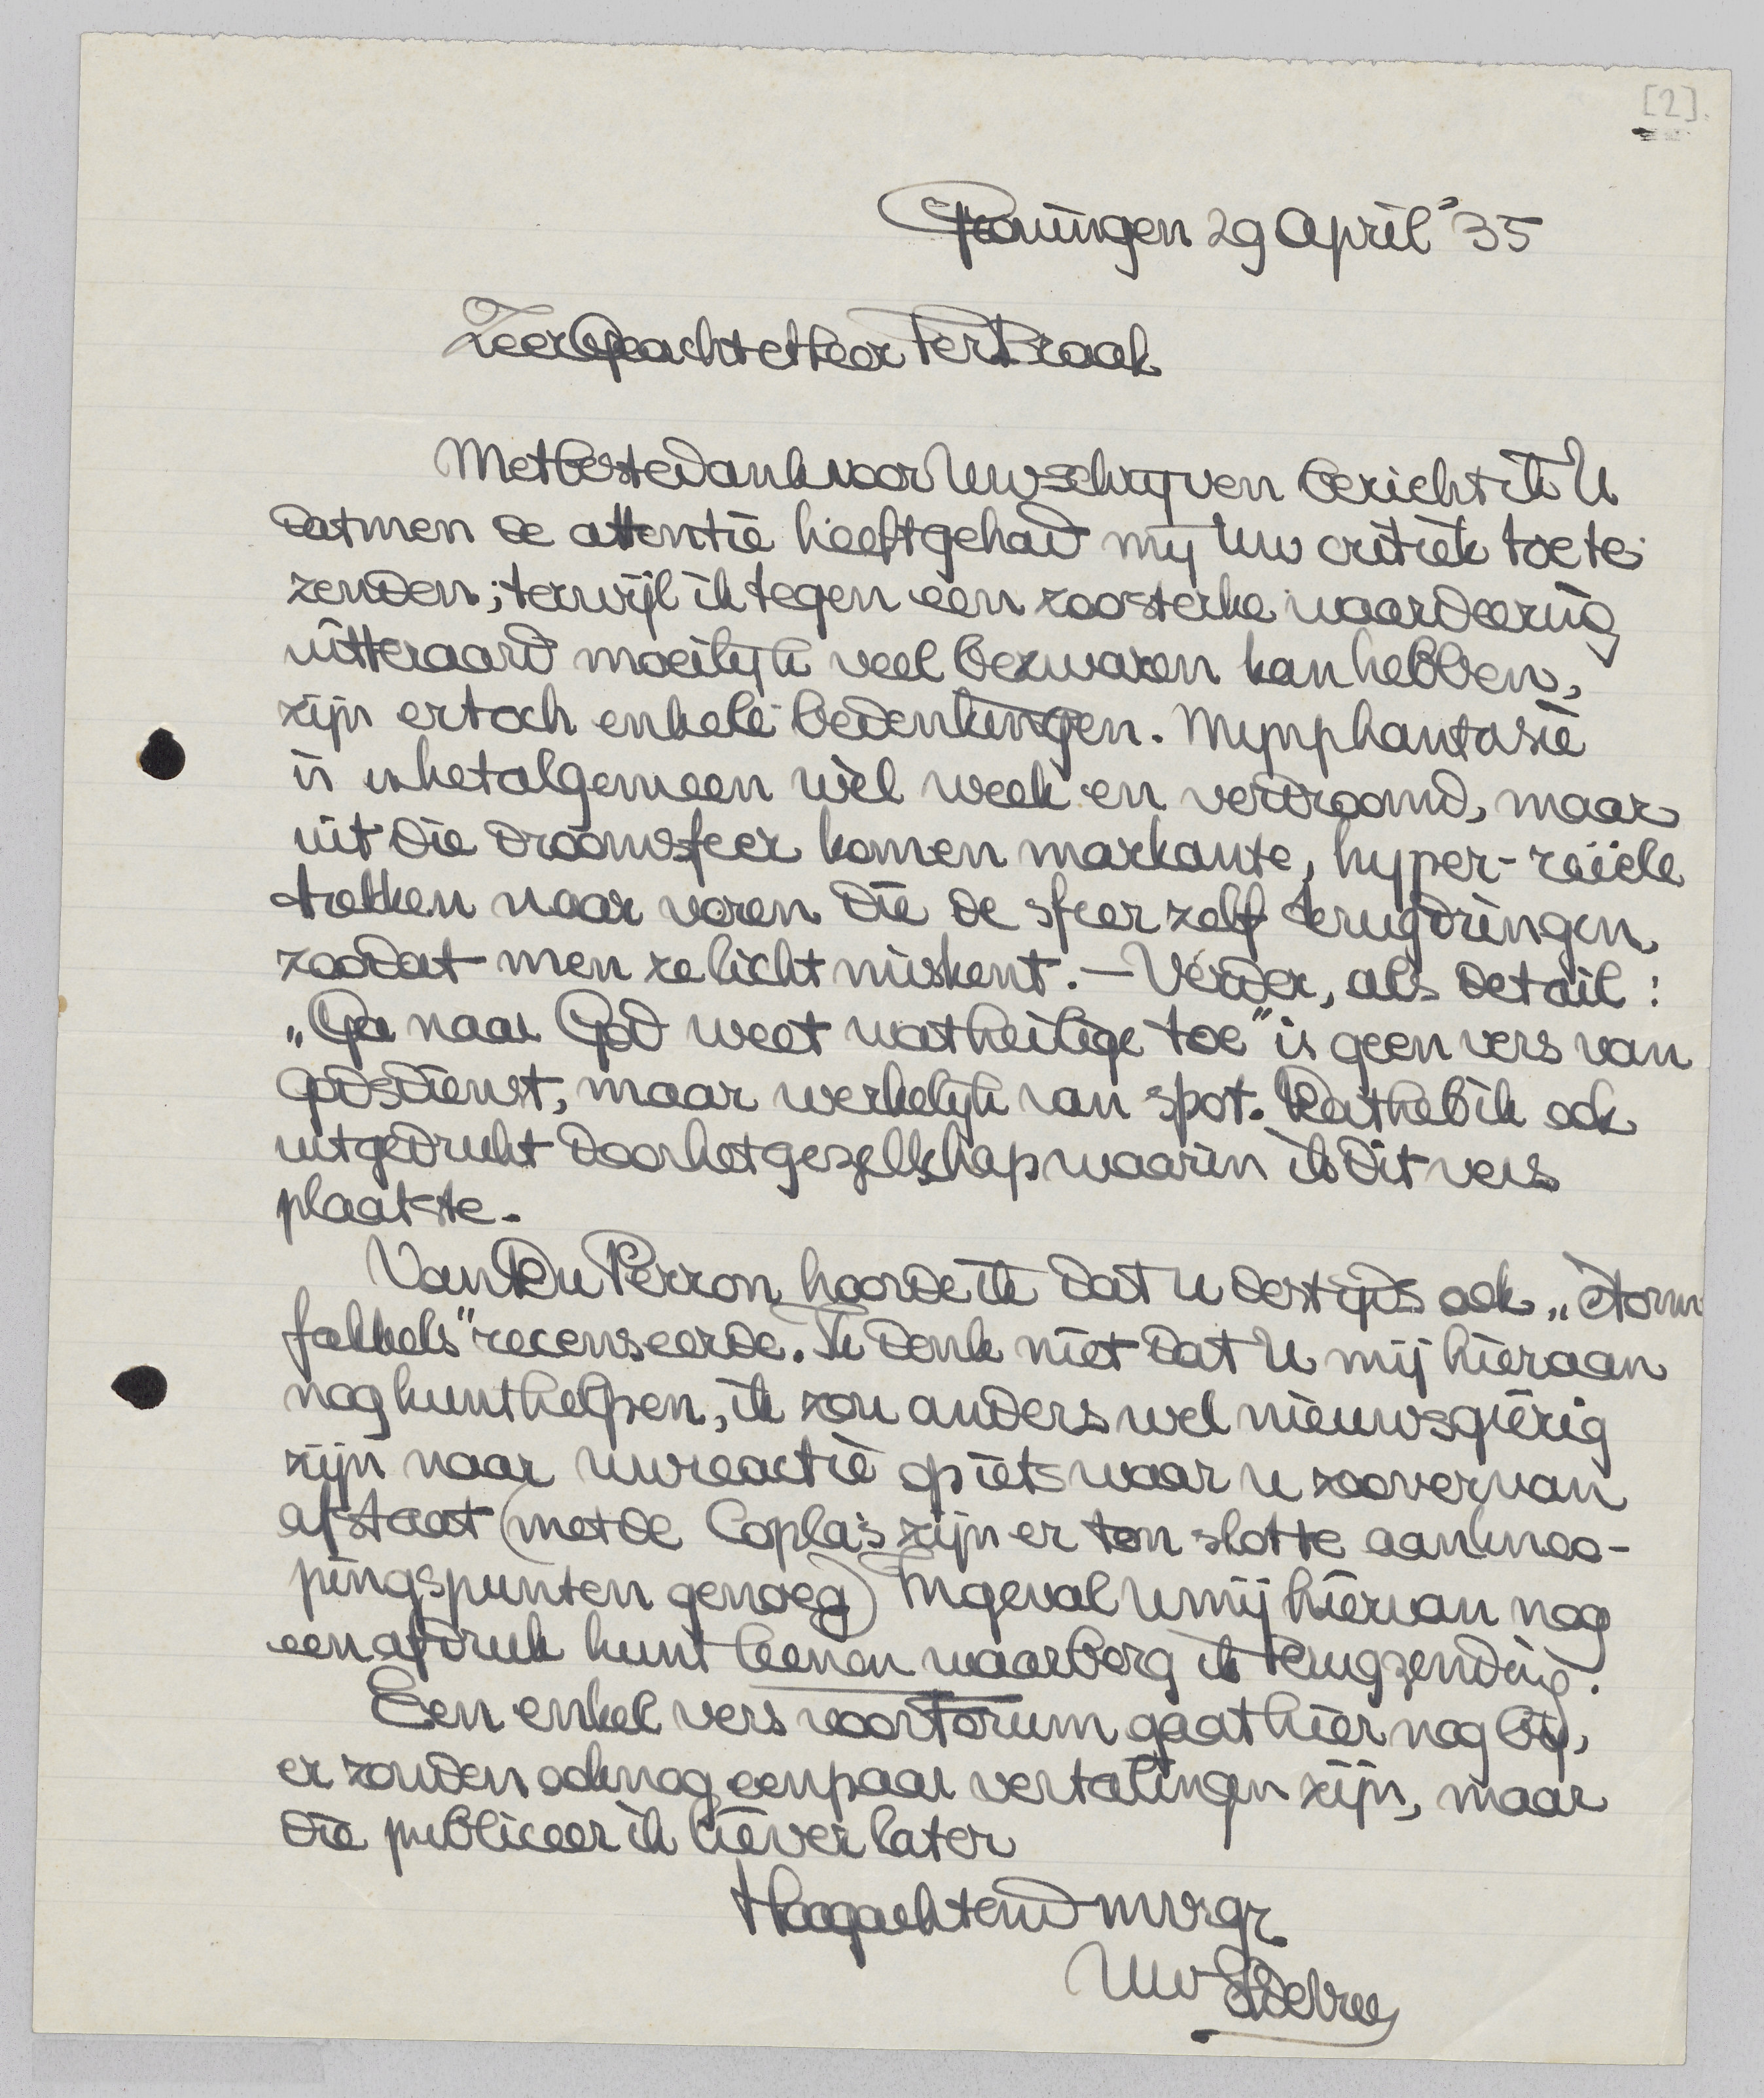 [2].
Groningen 29 April '35
Zeer Geachte Heer Ter Braak
Met besten dank voor Uw schrijven bericht ik U
dat men de attentie heeft gehad mij Uw critiek toe te
zenden; terwijl ik tegen een zoo sterke waardeering
uitteraard moeilijk veel bezwaren kan hebben,
zijn er toch enkele bedenkingen. Mymphantasie
is in het algemeen wel week en verdroomd, maar
uit die droomsfeer komen markante, hyper-reëele
trekken naar voren die de sfeer zelf terugdringen
zoodat men ze licht miskent. — Verder, als detail:
„Ga naar God weet wat heilige toe" is geen vers van
godsdienst, maar werkelijk van spot. Dat heb ik ook
uitgedrukt door het gezelschap waarin ik dit vers
plaatste.
Van Du Perron hoorde ik dat U destijds ook „Storm
fakkels" recenseerde. Ik denk niet dat U mij hieraan
nog kunt helpen, ik zou anders wel nieuwsgierig
zijn naar uw reactie op iets waar u zoo ver van
afstaat (met de Copla's zijn er ten slotte aanknoo-
pingspunten genoeg) Ingeval U mij hiervan nog
een afdruk kunt leenen waarborg ik terugzending.
Een enkel vers voor Forum gaat hier nog bij,
er zouden ook nog een paar vertalingen zijn, maar
die publiceer ik liever later
Hoogachtend mvrgr
Uw